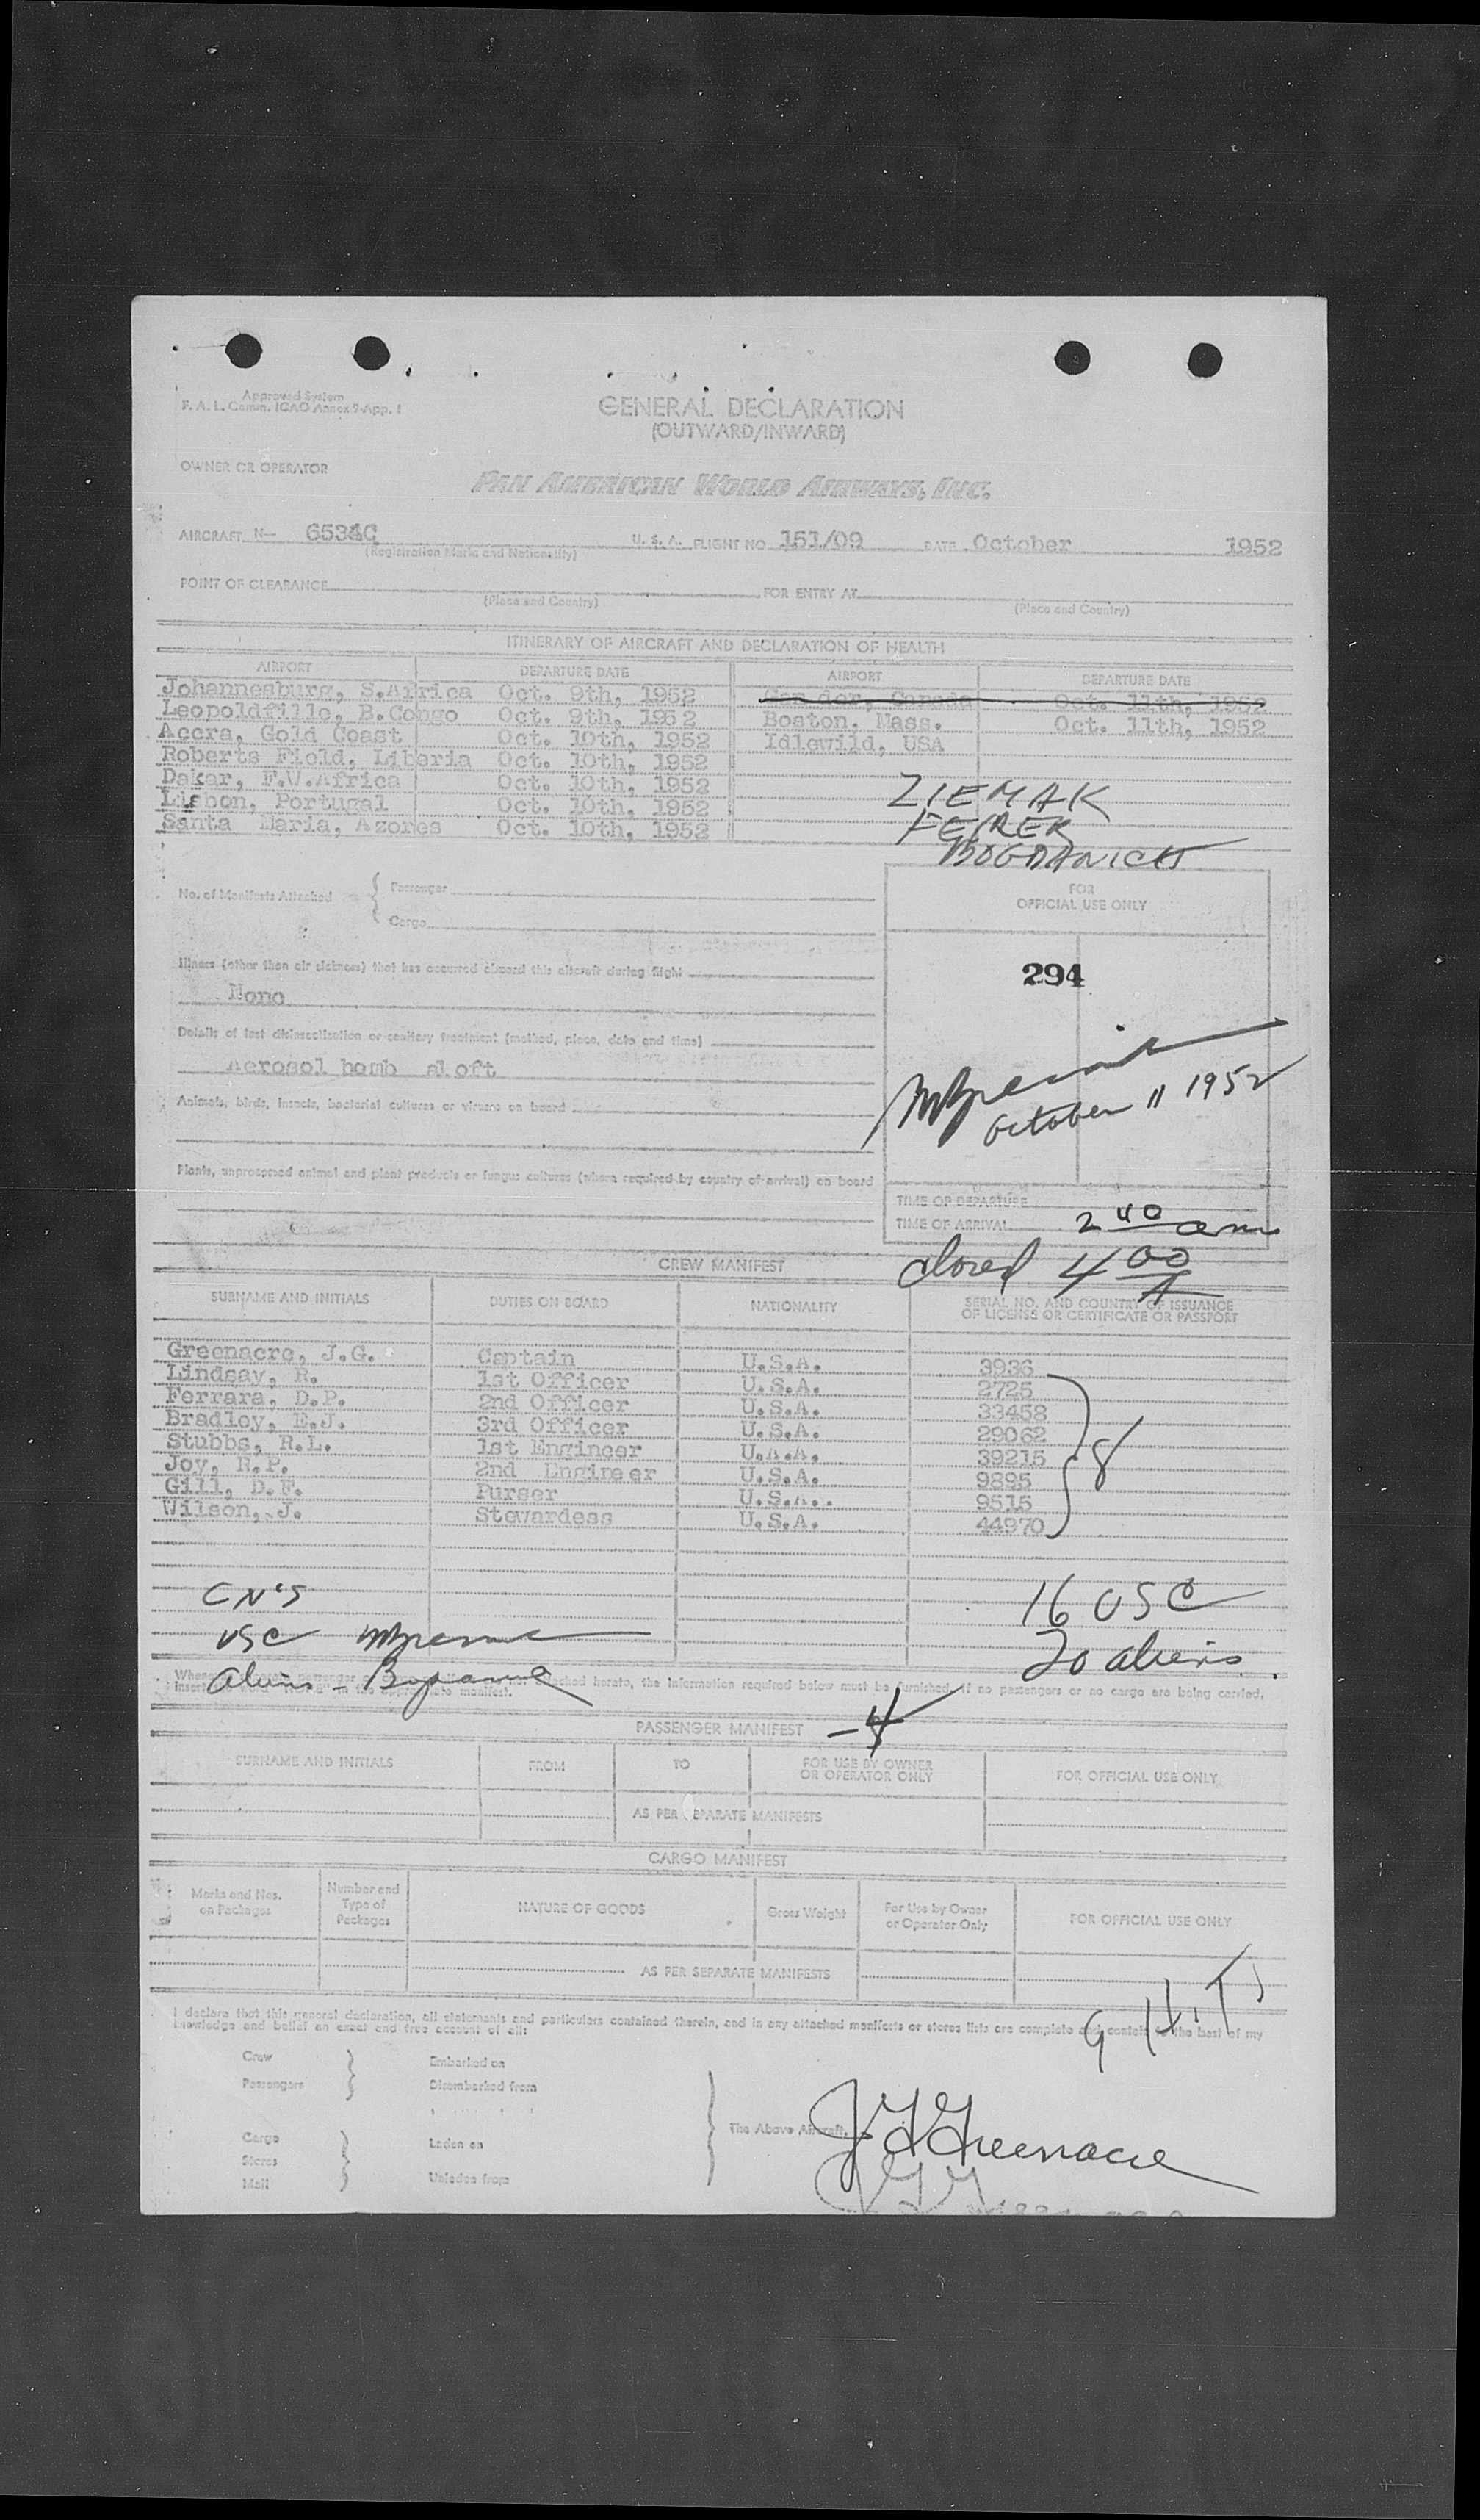 Approved System
F. A. L. Comm. ICAO Annex 9-App. 1
GENERAL DECLARATION
(OUTWARD/INWARD)
OWNER OR OPERATOR
PAN AMERICAN WORLD AIRWAYS, INC.
AIRCRAFT N- 6534C U. S. A. FLIGHT NO. 151/09 DATE October 1952
(Registration Marks and Nationality)
POINT OF CLEARANCE FOR ENTRY AT
(Place and Country) (Place and Country)
ITINERARY OF AIRCRAFT AND DECLARATION OF HEALTH
AIRPORT DEPARTURE DATE AIRPORT DEPARTURE DATE
Johannesburg, S.Africa Oct. 9th, 1952 Gander, Canada Oct. 11th, 1952
Leopoldfille, B.Congo Oct. 9th, 1952 Boston, Mass. Oct. 11th, 1952
Accra, Gold Coast Oct. 10th, 1952 Idlewild, USA
Roberts Field, Liberia Oct. 10th, 1952
Dakar, F.W.Africa Oct. 10th, 1952
Lisbon, Portugal Oct. 10th, 1952
Santa Maria, Azores Oct. 10th, 1952
ZIEMAK
FEIRER
BOGDANICH
No. of Manifests Attached { Passenger
Cargo
FOR
OFFICIAL USE ONLY
Illness (other than air sickness) that has occurred aboard this aircraft during flight
None
294
Details of last disinsectisation or sanitary treatment (method, place, date and time)
Aerosol bomb aloft
Animals, birds, insects, bacterial cultures or viruses on board
October 11 1952
Plants, unprocessed animal and plant products or fungus cultures (where required by country of arrival) on board
TIME OF DEPARTURE
TIME OF ARRIVAL 2 40 am
closed 4 00 A
CREW MANIFEST
SURNAME AND INITIALS DUTIES ON BOARD NATIONALITY SERIAL NO. AND COUNTRY OF ISSUANCE
OF LICENSE OR CERTIFICATE OR PASSPORT
Greenacre, J.G. Captain U.S.A. 3936
Lindsay, R. 1st Officer U.S.A. 2725
Ferrara, D.P. 2nd Officer U.S.A. 33458
Bradley, E.J. 3rd Officer U.S.A. 29062
Stubbs, R.L. 1st Engineer U.A.A. 39215
Joy, R.P. 2nd Engineer U.S.A. 9895
Gill, D.F. Purser U.S.A.. 9515
Wilson, J. Stewardess U.S.A. 44970
8
CN'S
16 USC
USC
20 aliens
Aliens -
attached hereto, the information required below must be furnished. If no passengers or no cargo are being carried,
insert in the appropriate manifest.
PASSENGER MANIFEST - 4
SURNAME AND INITIALS FROM TO FOR USE BY OWNER
OR OPERATOR ONLY FOR OFFICIAL USE ONLY
AS PER SEPARATE MANIFESTS
CARGO MANIFEST
Marks and Nos.
on Packages Number and
Type of
Packages NATURE OF GOODS Gross Weight For Use by Owner
or Operator Only FOR OFFICIAL USE ONLY
AS PER SEPARATE MANIFESTS
I declare that this general declaration, all statements and particulars contained therein, and in any attached manifests or stores lists are complete and contain to the best of my
knowledge and belief an exact and true account of all:
Crew Embarked on
Passengers Disembarked from
The Above Aircraft.
Cargo Laden on
Stores
Mail Unladen from
JGGreenacre